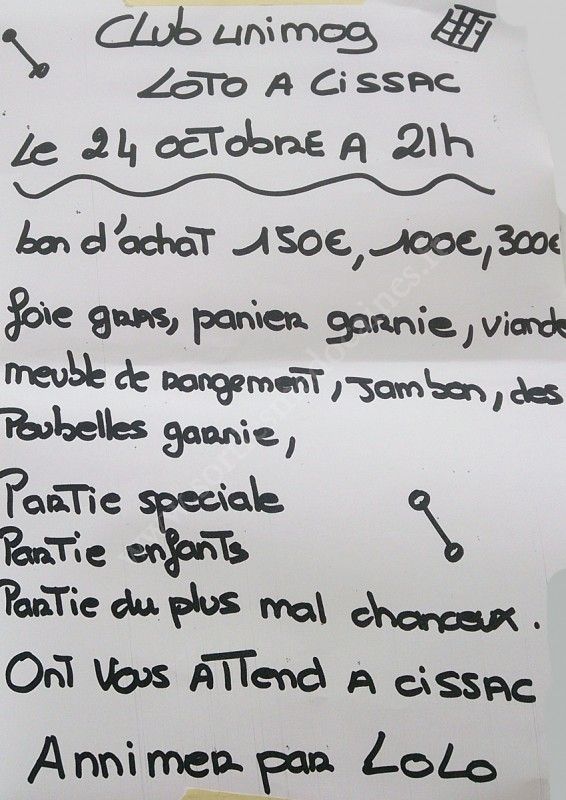 Club unimog
LOTO A CISSAC
Le 24 OCTOBRE A 21h
bon d'achat 150€, 100€, 300€
foie gras, panier garnie, viande
meuble de rangement, Jambon, des
Poubelles garnie,
Partie speciale
Partie enfants
Partie du plus mal chanceux.
Ont Vous Attend A CISSAC
Annimer par LOLO